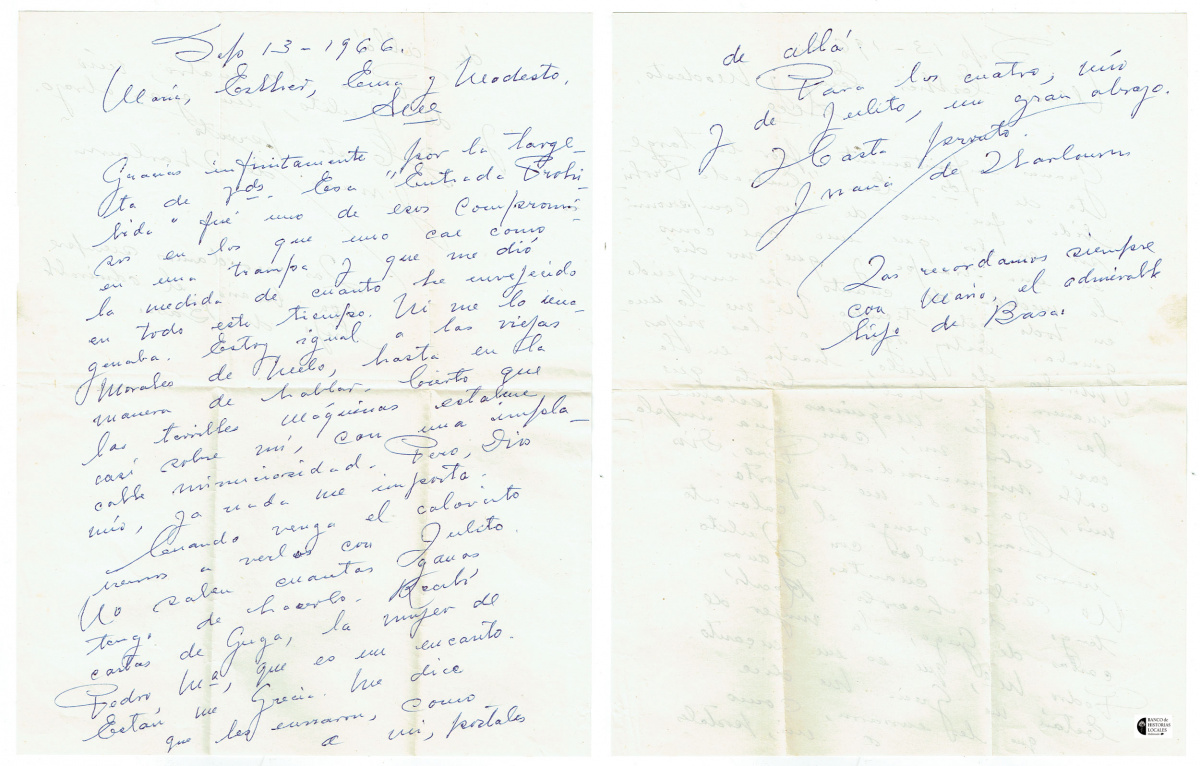 Sep 13 - 1966.
María, Esther, Ema y Modesto.
Gracias infinitamente por la targe-
ta de Vds. Esa "Entrada Prohi-
bida" fué uno de esos compromi-
sos en los que uno cae como
en una trampa y que me dió
la medida de cuanto he envejecido
en todo este tiempo. Ni me lo ima-
ginaba. Estoy igual a las viejas
Morales de Melo, hasta en la
manera de hablar. Cierto que
las terribles máquinas estaban
casi sobre mí, con una impla-
cable minuciosidad. Pero, Dios
mío, ya nada me importa.
Cuando venga el calorcito
iremos a verlos con Julito.
No saben cuantas ganas
tengo de hacerlo. Recibí
cartas de Guga, la mujer de
Pedro Ma, que es un encanto.
Están en Grecia. Me dice
que les enviaron, como
a mi, postales
de allá.
Para los cuatro, mío
y de Julito, un gran abrazo.
Hasta pronto.
Juana de Ibarbourou
Las recordamos siempre
con Mario, el admirable
hijo de Basa.
BANCO de
HISTORIAS
LOCALES